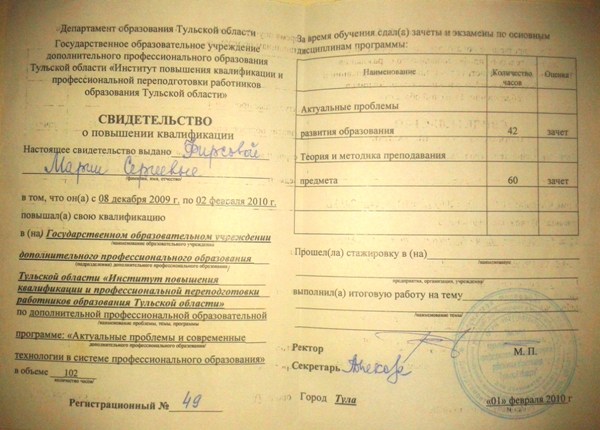 Департамент образования Тульской области
Государственное образовательное учреждение
дополнительного профессионального образования
Тульской области «Институт повышения квалификации и
профессиональной переподготовки работников
образования Тульской области»
СВИДЕТЕЛЬСТВО
о повышении квалификации
Настоящее свидетельство выдано Фирсовой
Марии Сергеевне
фамилия, имя, отчество
в том, что он(а) с 08 декабря 2009 г. по 02 февраля 2010 г.
повышал(а) свою квалификацию
в (на) Государственном образовательном учреждении
наименование образовательного учреждения
дополнительного профессионального образования
(подразделения) дополнительного профессионального образования
Тульской области «Институт повышения
квалификации и профессиональной переподготовки
работников образования Тульской области»
по дополнительной профессиональной образовательной
наименование проблемы, темы, программы
программе: «Актуальные проблемы и современные
дополнительного профессионального образования
технологии в системе профессионального образования»
в объеме 102
количество часов
Регистрационный № 49
За время обучения сдал(а) зачеты и экзамены по основным
дисциплинам программы:
Наименование Количество часов Оценка
Актуальные проблемы
развития образования 42 зачет
Теория и методика преподавания
предмета 60 зачет
Прошел(ла) стажировку в (на)
наименование
предприятия, организации, учреждения
выполнил(а) итоговую работу на тему
наименование темы
Ректор М. П.
Секретарь
Город Тула «01» февраля 2010 г